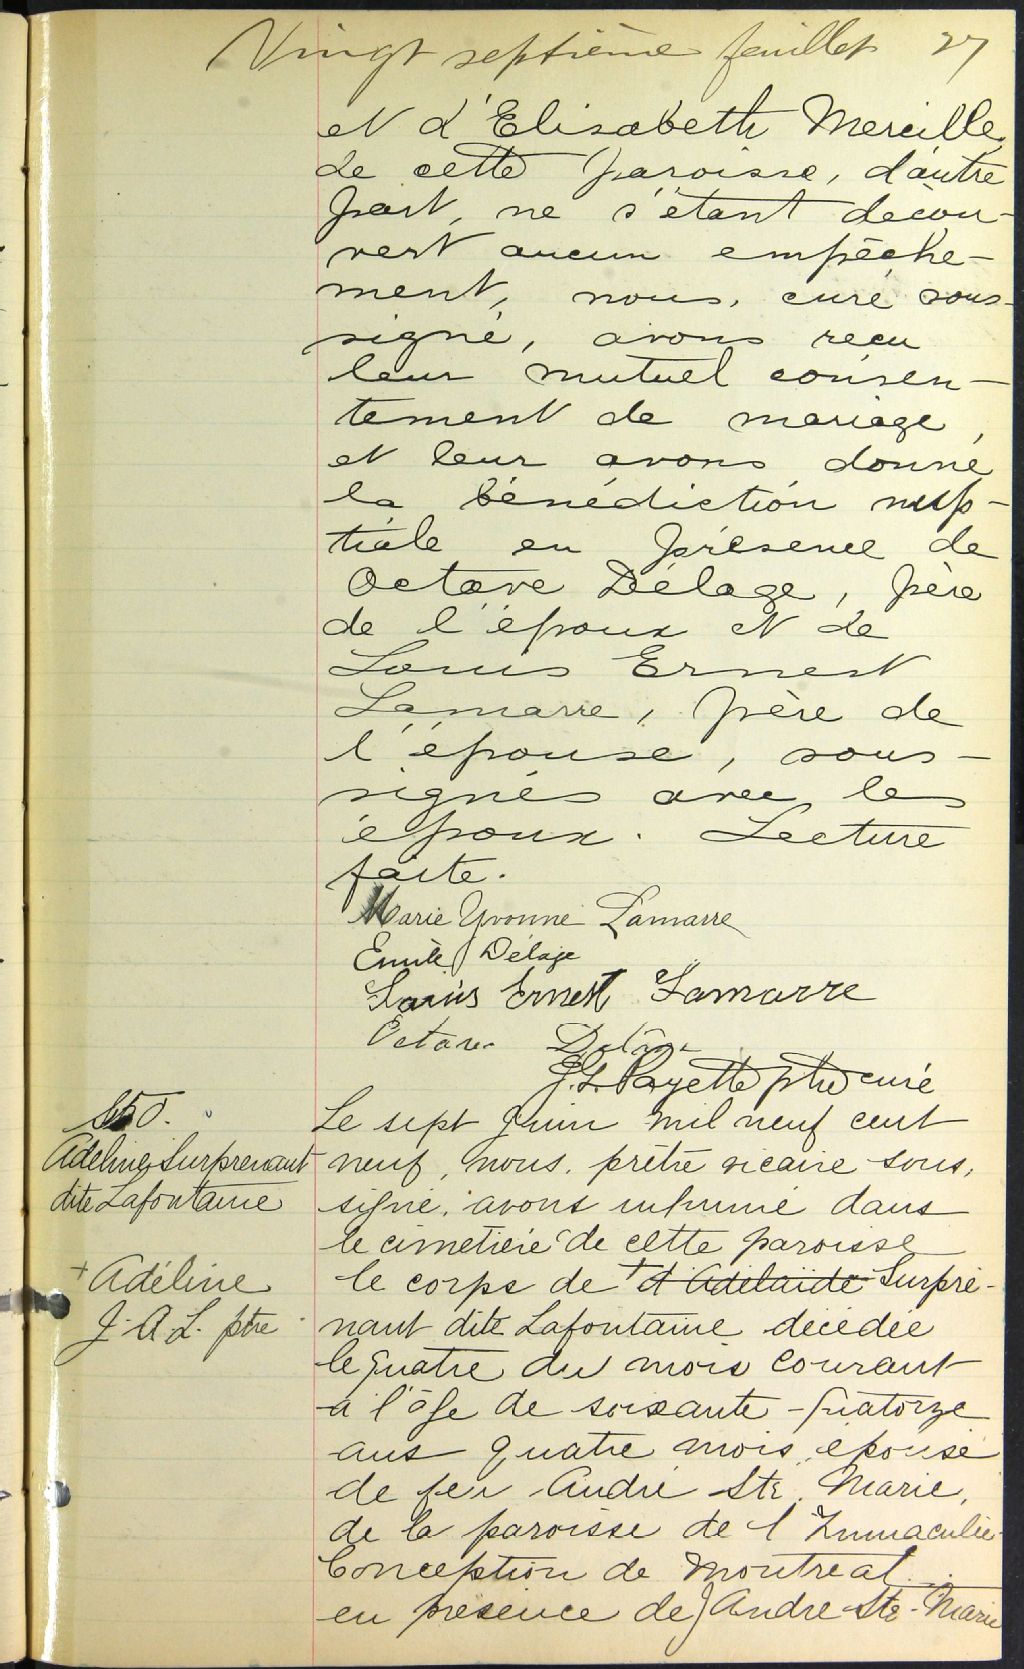 Vingt septième feuillet 27
et d'Elisabeth Mereille,
de cette paroisse, d'autre
part, ne s'étant décou-
vert aucun empêche-
ment, nous, curé sous-
signé, avons reçu
leur mutuel consen-
tement de mariage,
et leur avons donné
la bénédiction nup-
tiale en présence de
Octave Délage, père
de l'époux et de
Louis Ernest
Lamarre, père de
l'épouse, sous-
signés avec les
époux. Lecture
faite.
Marie Yvonne Lamarre
Emile Délage
Louis Ernest Lamarre
Octave
J. L. Payette ptre curé
S50.
Adeline Surprenant
dite Lafontaine
+ Adéline
J. A. L. ptre
Le sept Juin mil neuf cent
neuf, nous, prêtre vicaire sous,
signé, avons inhumé dans
le cimetière de cette paroisse
le corps de + d'Adélaïde Surpre-
nant dite Lafontaine décédée
le quatre du mois courant
a l'âge de soixante-quatorze
ans quatre mois, épouse
de feu André Ste. Marie,
de la paroisse de l'Immaculée
Conception de Montreal
en présence de J André Ste-Marie